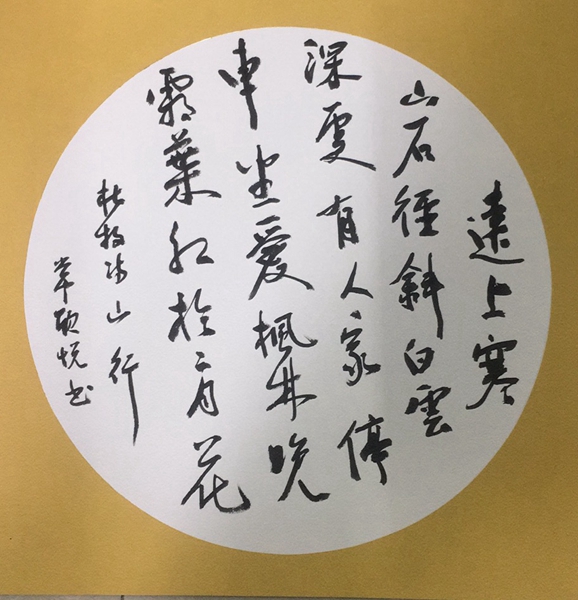 遠上寒
山石徑斜白雲
深處有人家停
車坐愛楓林晚
霜葉紅於二月花
杜牧诗山行
常颐悦书